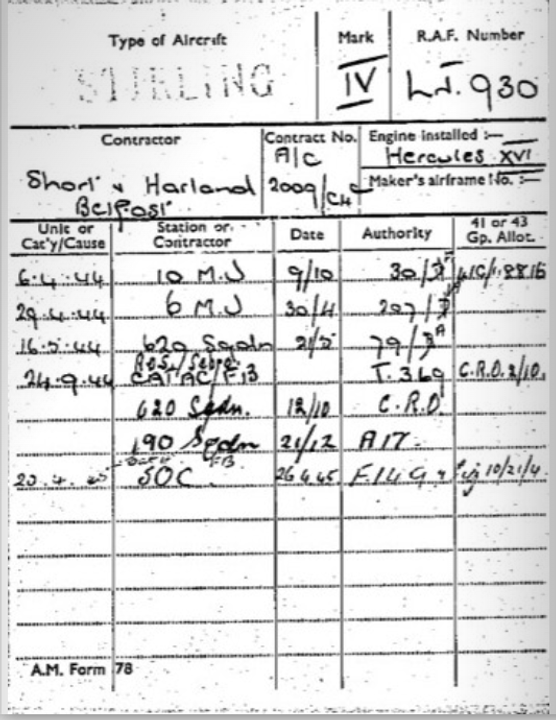 Type of Aircraft Mark R.A.F. Number
STIRLING IV LJ.930
Contractor Contract No. Engine installed :—
A/C Hercules XVI
Short & Harland 2009/C4 Maker's airframe No. :—
Belfast
Unit or Cat'y/Cause Station or Contractor Date Authority 41 or 43 Gp. Allot.
6.4.44 10 M.U 9/10 30/
29.4.44 6 M.U 30/4 207/
16.5.44 620 Sqdn 21/5 79/
24.9.44 CAT AC/FB T.369 C.R.O.2/10.
620 Sqdn. 12/10 C.R.O.
190 Sqdn 21/12 A17.
SOC 26.4.45 10/21/4.
A.M. Form 78